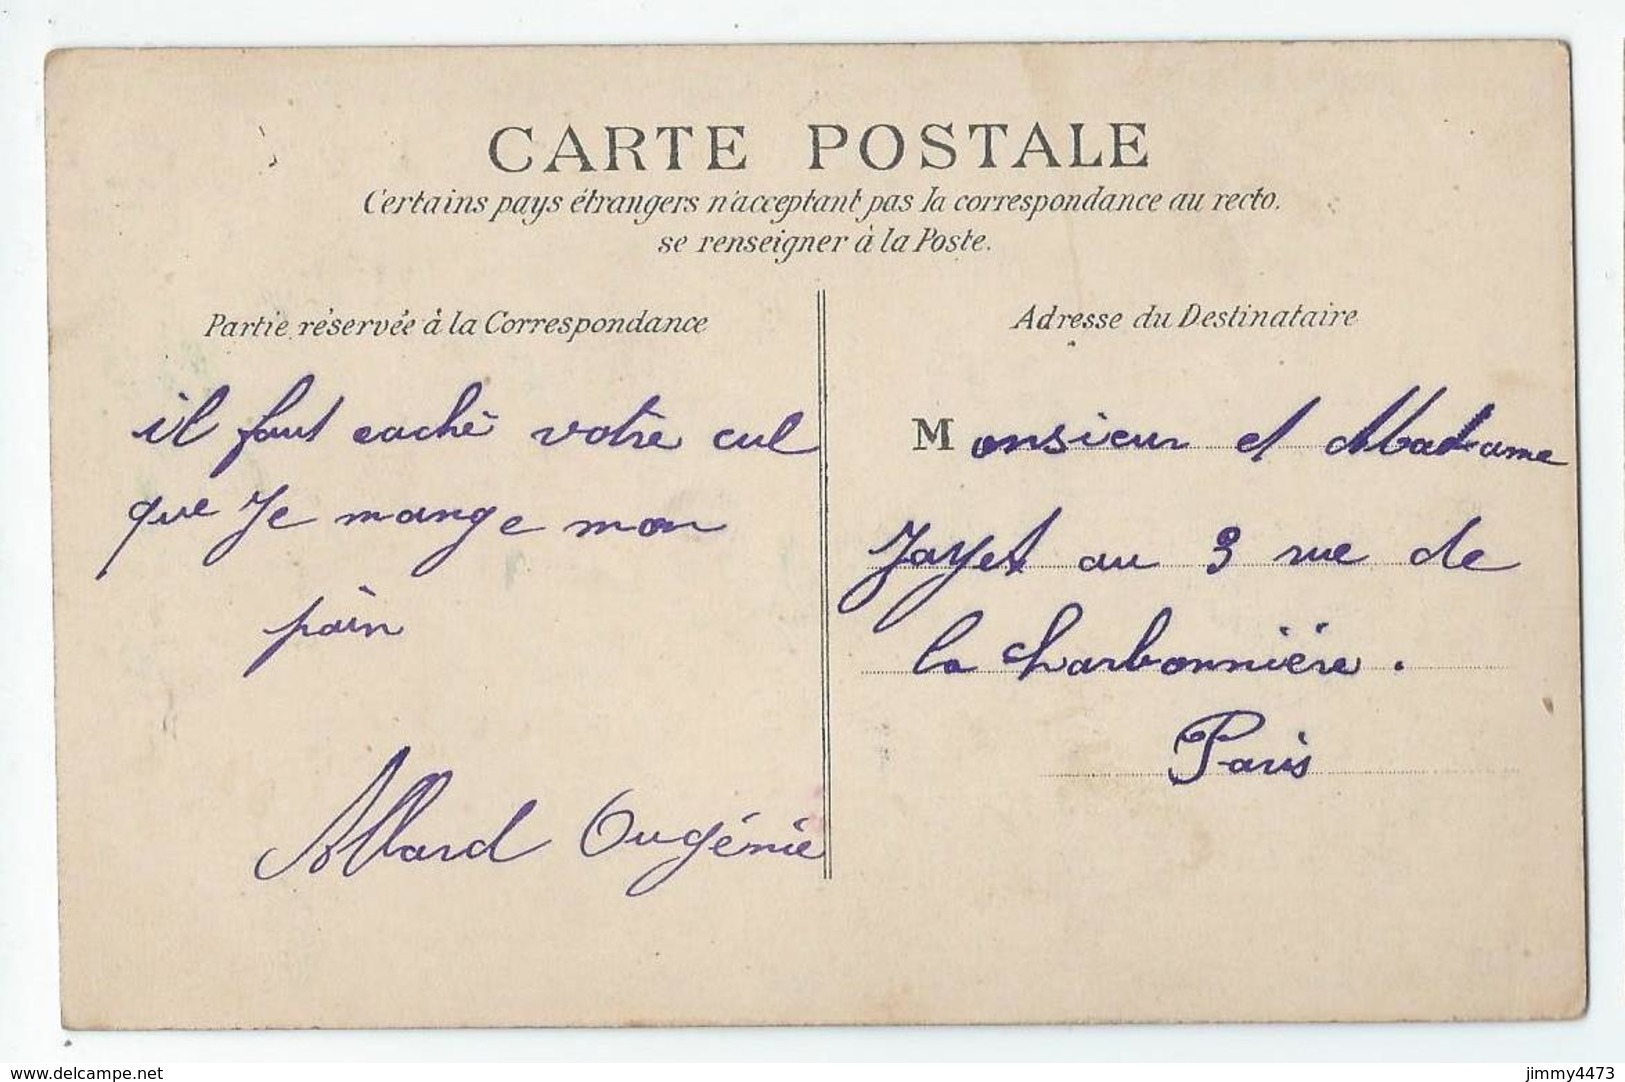 CARTE POSTALE
Certains pays étrangers n'acceptant pas la correspondance au recto.
se renseigner à la Poste.
Partie réservée à la Correspondance
il faut caché votre cul
que Je mange mon
pain
Allard Eugénie
Adresse du Destinataire
Monsieur et Madame
Jayet au 3 rue de
la Charbonnière.
Paris
www.delcampe.net
jimmy4473